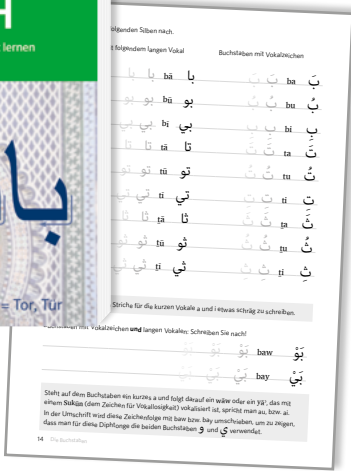 H
t lernen
با
= Tor, Tür
olgenden Silben nach.
t folgendem langen Vokal
Buchstaben mit Vokalzeichen
با با bā با
بَ بَ ba بَ
بو بو bū بو
بُ بُ bu بُ
بي بي bī بي
بِ بِ bi بِ
تا تا tā تا
تَ تَ ta تَ
تو تو tū تو
تُ تُ tu تُ
تي تي tī تي
تِ تِ ti تِ
ثا ثا ṯā ثا
ثَ ثَ ṯa ثَ
ثو ثو ṯū ثو
ثُ ثُ ṯu ثُ
ثي ثي ṯī ثي
ثِ ثِ ṯi ثِ
Striche für die kurzen Vokale a und i etwas schräg zu schreiben.
mit Vokalzeichen und langen Vokalen: Schreiben Sie nach!
بَوْ بَوْ baw بَوْ
بَيْ بَيْ bay بَيْ
Steht auf dem Buchstaben ein kurzes a und folgt darauf ein wāw oder ein yāʾ, das mit
einem Sukūn (dem Zeichen für Vokallosigkeit) vokalisiert ist, spricht man au, bzw. ai.
In der Umschrift wird diese Zeichenfolge mit baw bzw. bay umschrieben, um zu zeigen,
dass man für diese Diphthonge die beiden Buchstaben و und ي verwendet.
14 Die Buchstaben